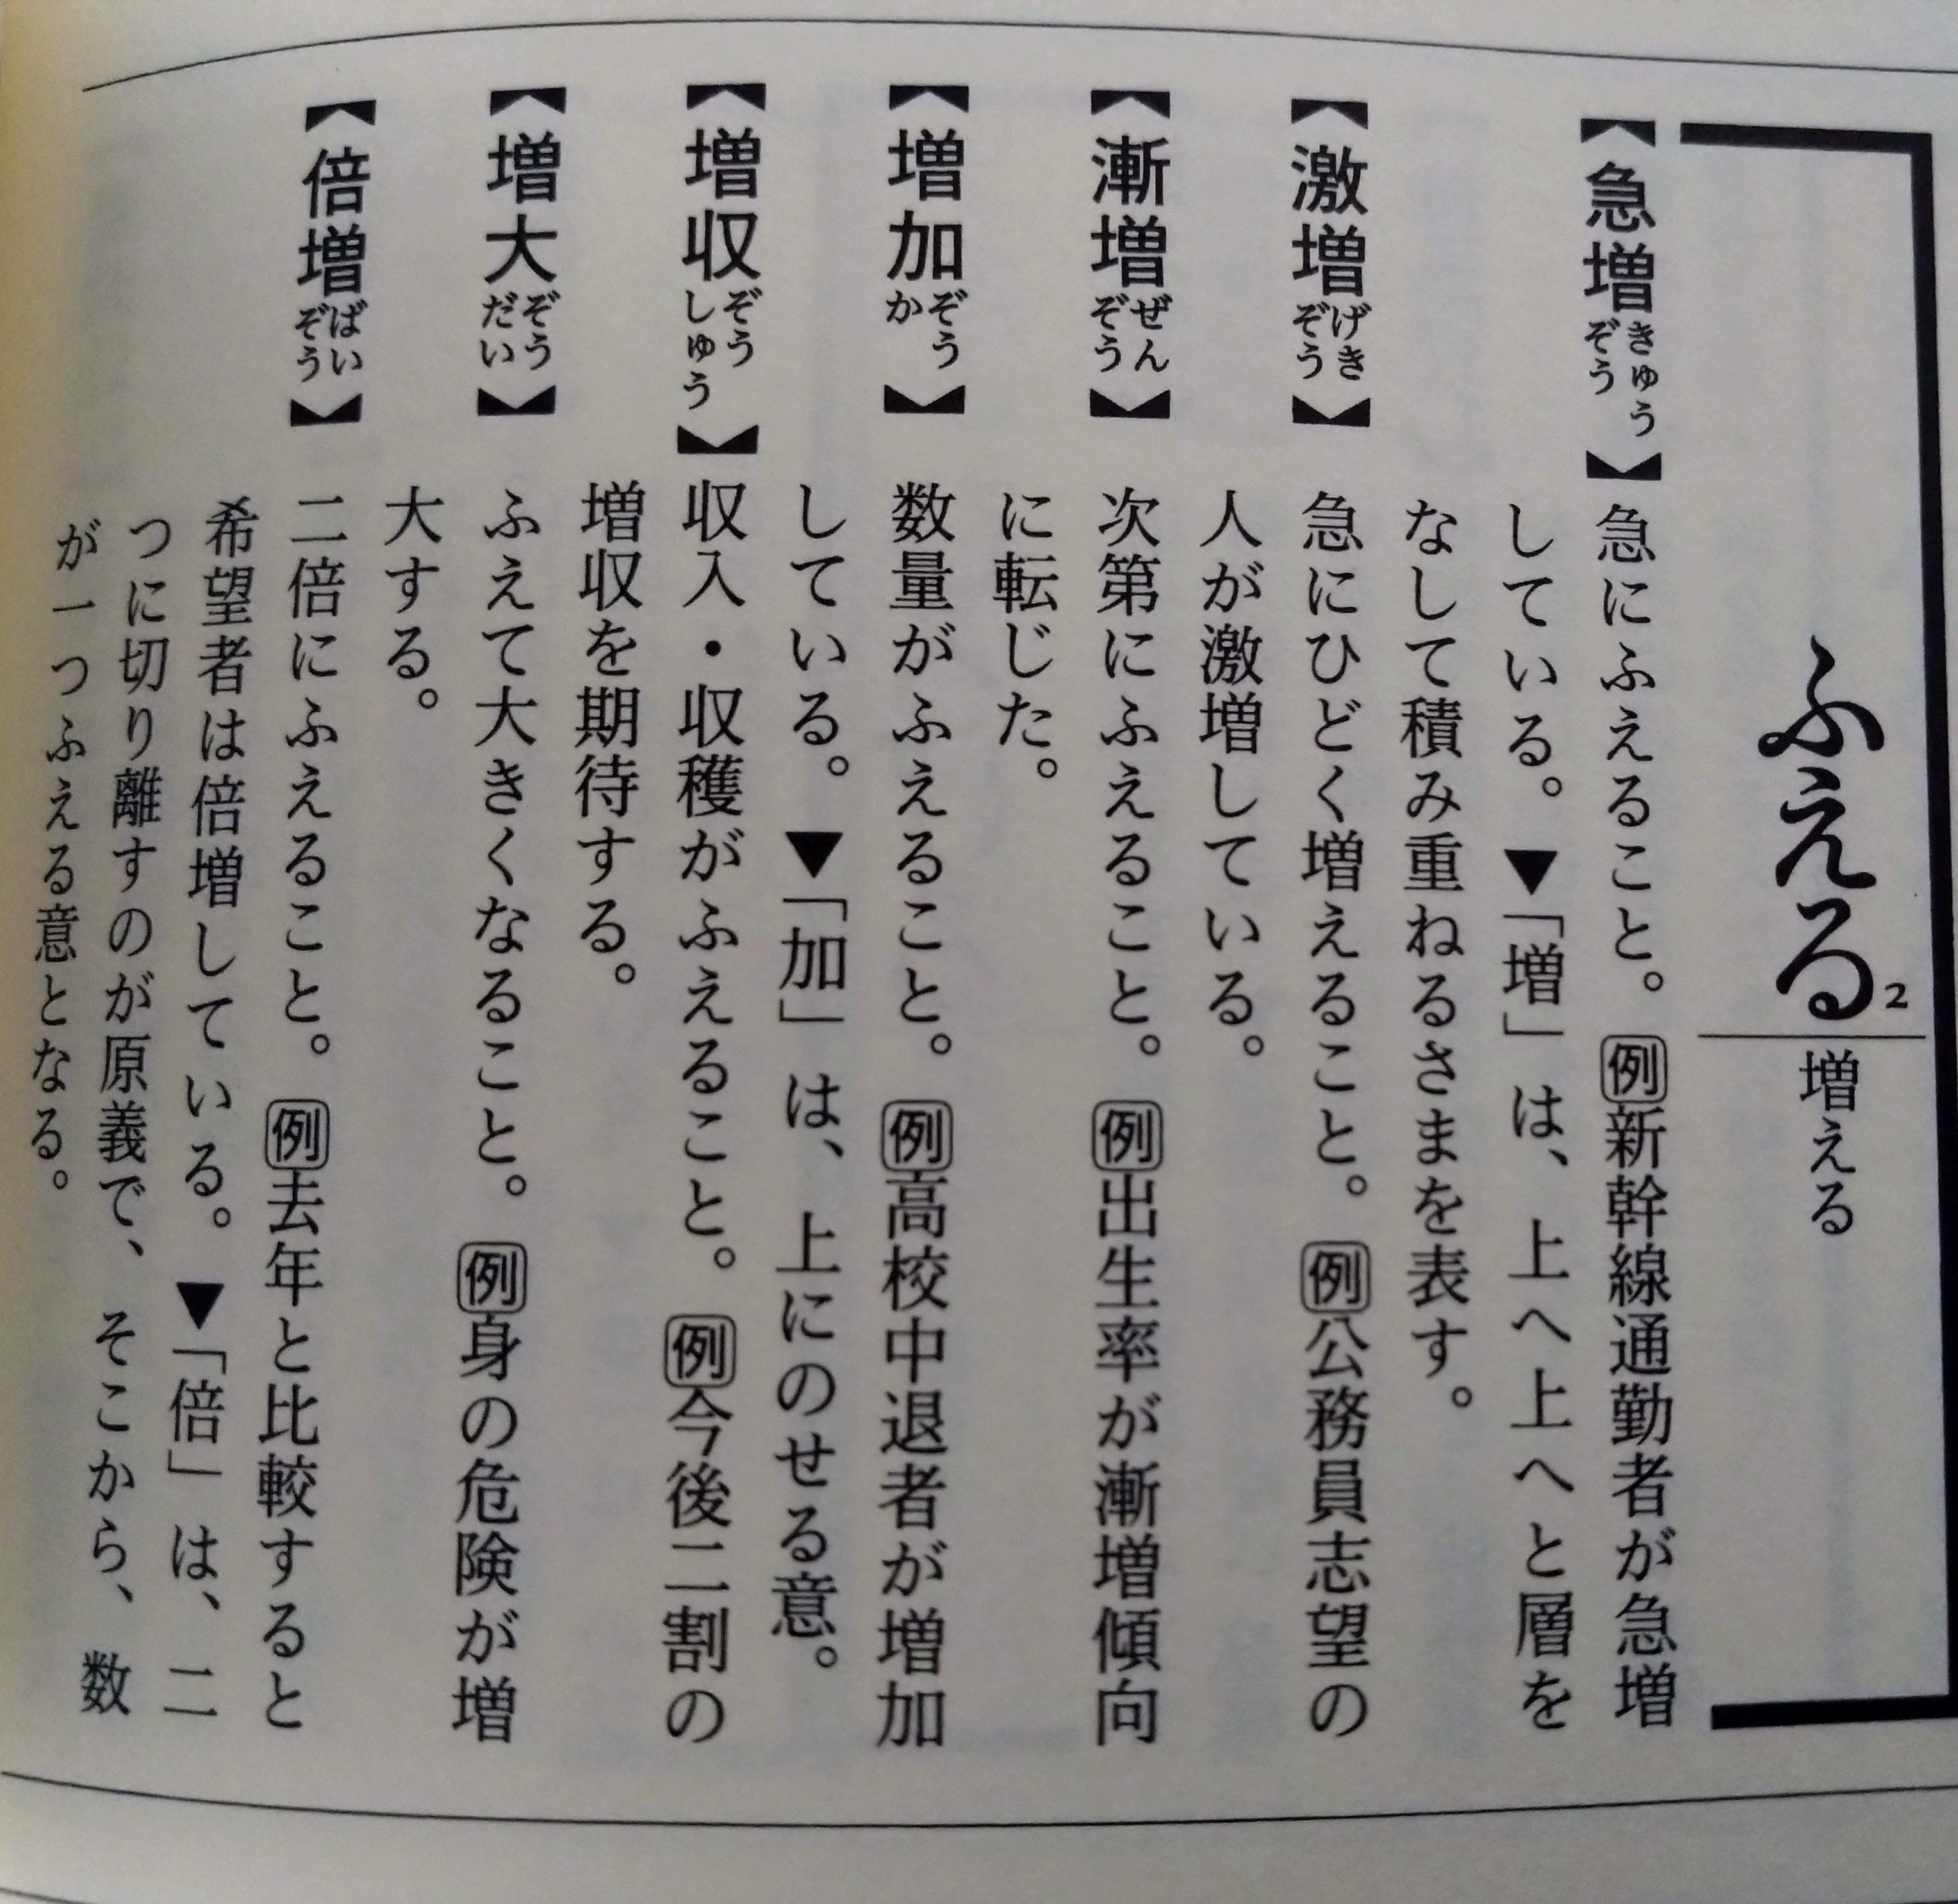 ふえる2 増える
【急増きゅうぞう】急にふえること。例新幹線通勤者が急増
している。▼「増」は、上へ上へと層を
なして積み重ねるさまを表す。
【激増げきぞう】急にひどく増えること。例公務員志望の
人が激増している。
【漸増ぜんぞう】次第にふえること。例出生率が漸増傾向
に転じた。
【増加ぞうか】数量がふえること。例高校中退者が増加
している。▼「加」は、上にのせる意。
【増収ぞうしゅう】収入・収穫がふえること。例今後二割の
増収を期待する。
【増大ぞうだい】ふえて大きくなること。例身の危険が増
大する。
【倍増ばいぞう】二倍にふえること。例去年と比較すると
希望者は倍増している。▼「倍」は、二
つに切り離すのが原義で、そこから、数
が一つふえる意となる。